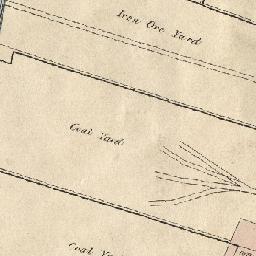 Iron Ore Yard
Coal Yard
Coal